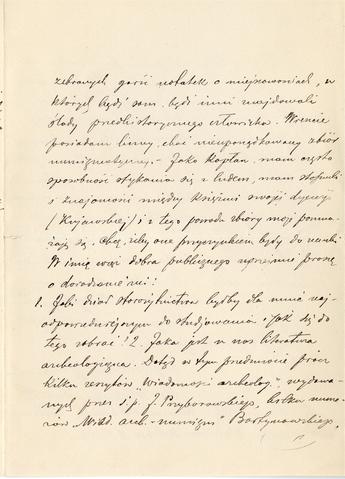 zebranych garść notatek o miejscowościach, w
których bądź sam, bądź inni znajdowali
ślady przedhistorycznego człowieka. Wreszcie
posiadam liczny, choć nieuporządkowany zbiór
numizmatyczny. – Jako kapłan, mam częstą
sposobność stykania się z ludem, mam stosunki
i znajomości między księżmi swojej dyecezji
(Kujawskiej) i z tego powodu zbiory moje pomna-
żają się. Chcę, żeby one przyczynkiem były do nauki
W imię więc dobra publicznego uprzejmie proszę
o doradzenie mi:
1. Jaki dział starożytnictwa byłby dla mnie naj-
odpowiedniejszym do studjowania i jak się do
tego zabrać? 2. Jaka jest u nas literatura
archeologiczna. Dotąd w tym przedmiocie prócz
kilku zeszytów „Wiadomości archeolog." wydawa-
nych przez ś. p. J. Przyborowskiego, kilku nume-
rów „Wiad. arch.-numizm" Bartynowskiego,